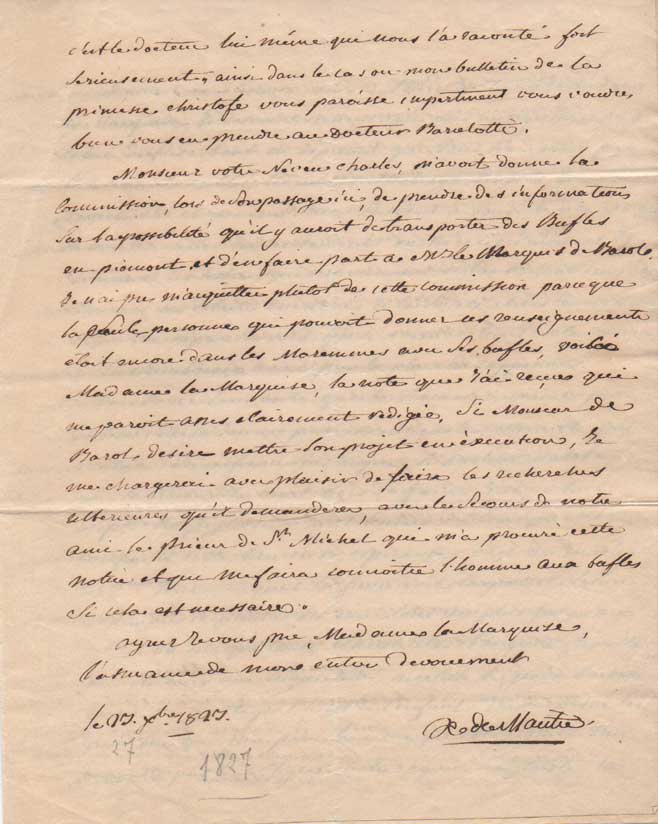 c'est le docteur lui même qui nous l'a raconté fort
serieusement, ainsi dans le cas ou mon bulletin de la
princesse christofe vous paroisse impertinent vous voudrez
bien vous en prendre au Docteur Barielotti.
Monsieur votre Neveu Charles, m'avoit donné la
Commission, lors de son passage ici, de prendre des informations
sur la possibilité qu'il y auroit de transporter des Bufles
en piemont et d'en faire part à Mr le Marquis de Barol.
Je n'ai pu m'acquitter plutot de cette commission parceque
la seule personne qui pouvoit donner ces renseignements
étoit encore dans les Maremmes avec ses bufles, voilà
Madame la Marquise, la note que j'ai reçue qui
me paroit assez clairement redigée, Si Monsieur de
Barol desire mettre son projet en éxecution, je
me chargerai avec plaisir de faire les recherches
ulterieures qu'il demandera, avec les secours de notre
ami le prieur de St Michel qui m'a procuré cette
notice et qui me faira connoitre l'homme aux bufles
si cela est necessaire.
agréez je vous prie, Madame la Marquise,
l'assurance de mon entier devouement
le 27. xbre 1827.
X de Maistre.
27
1827